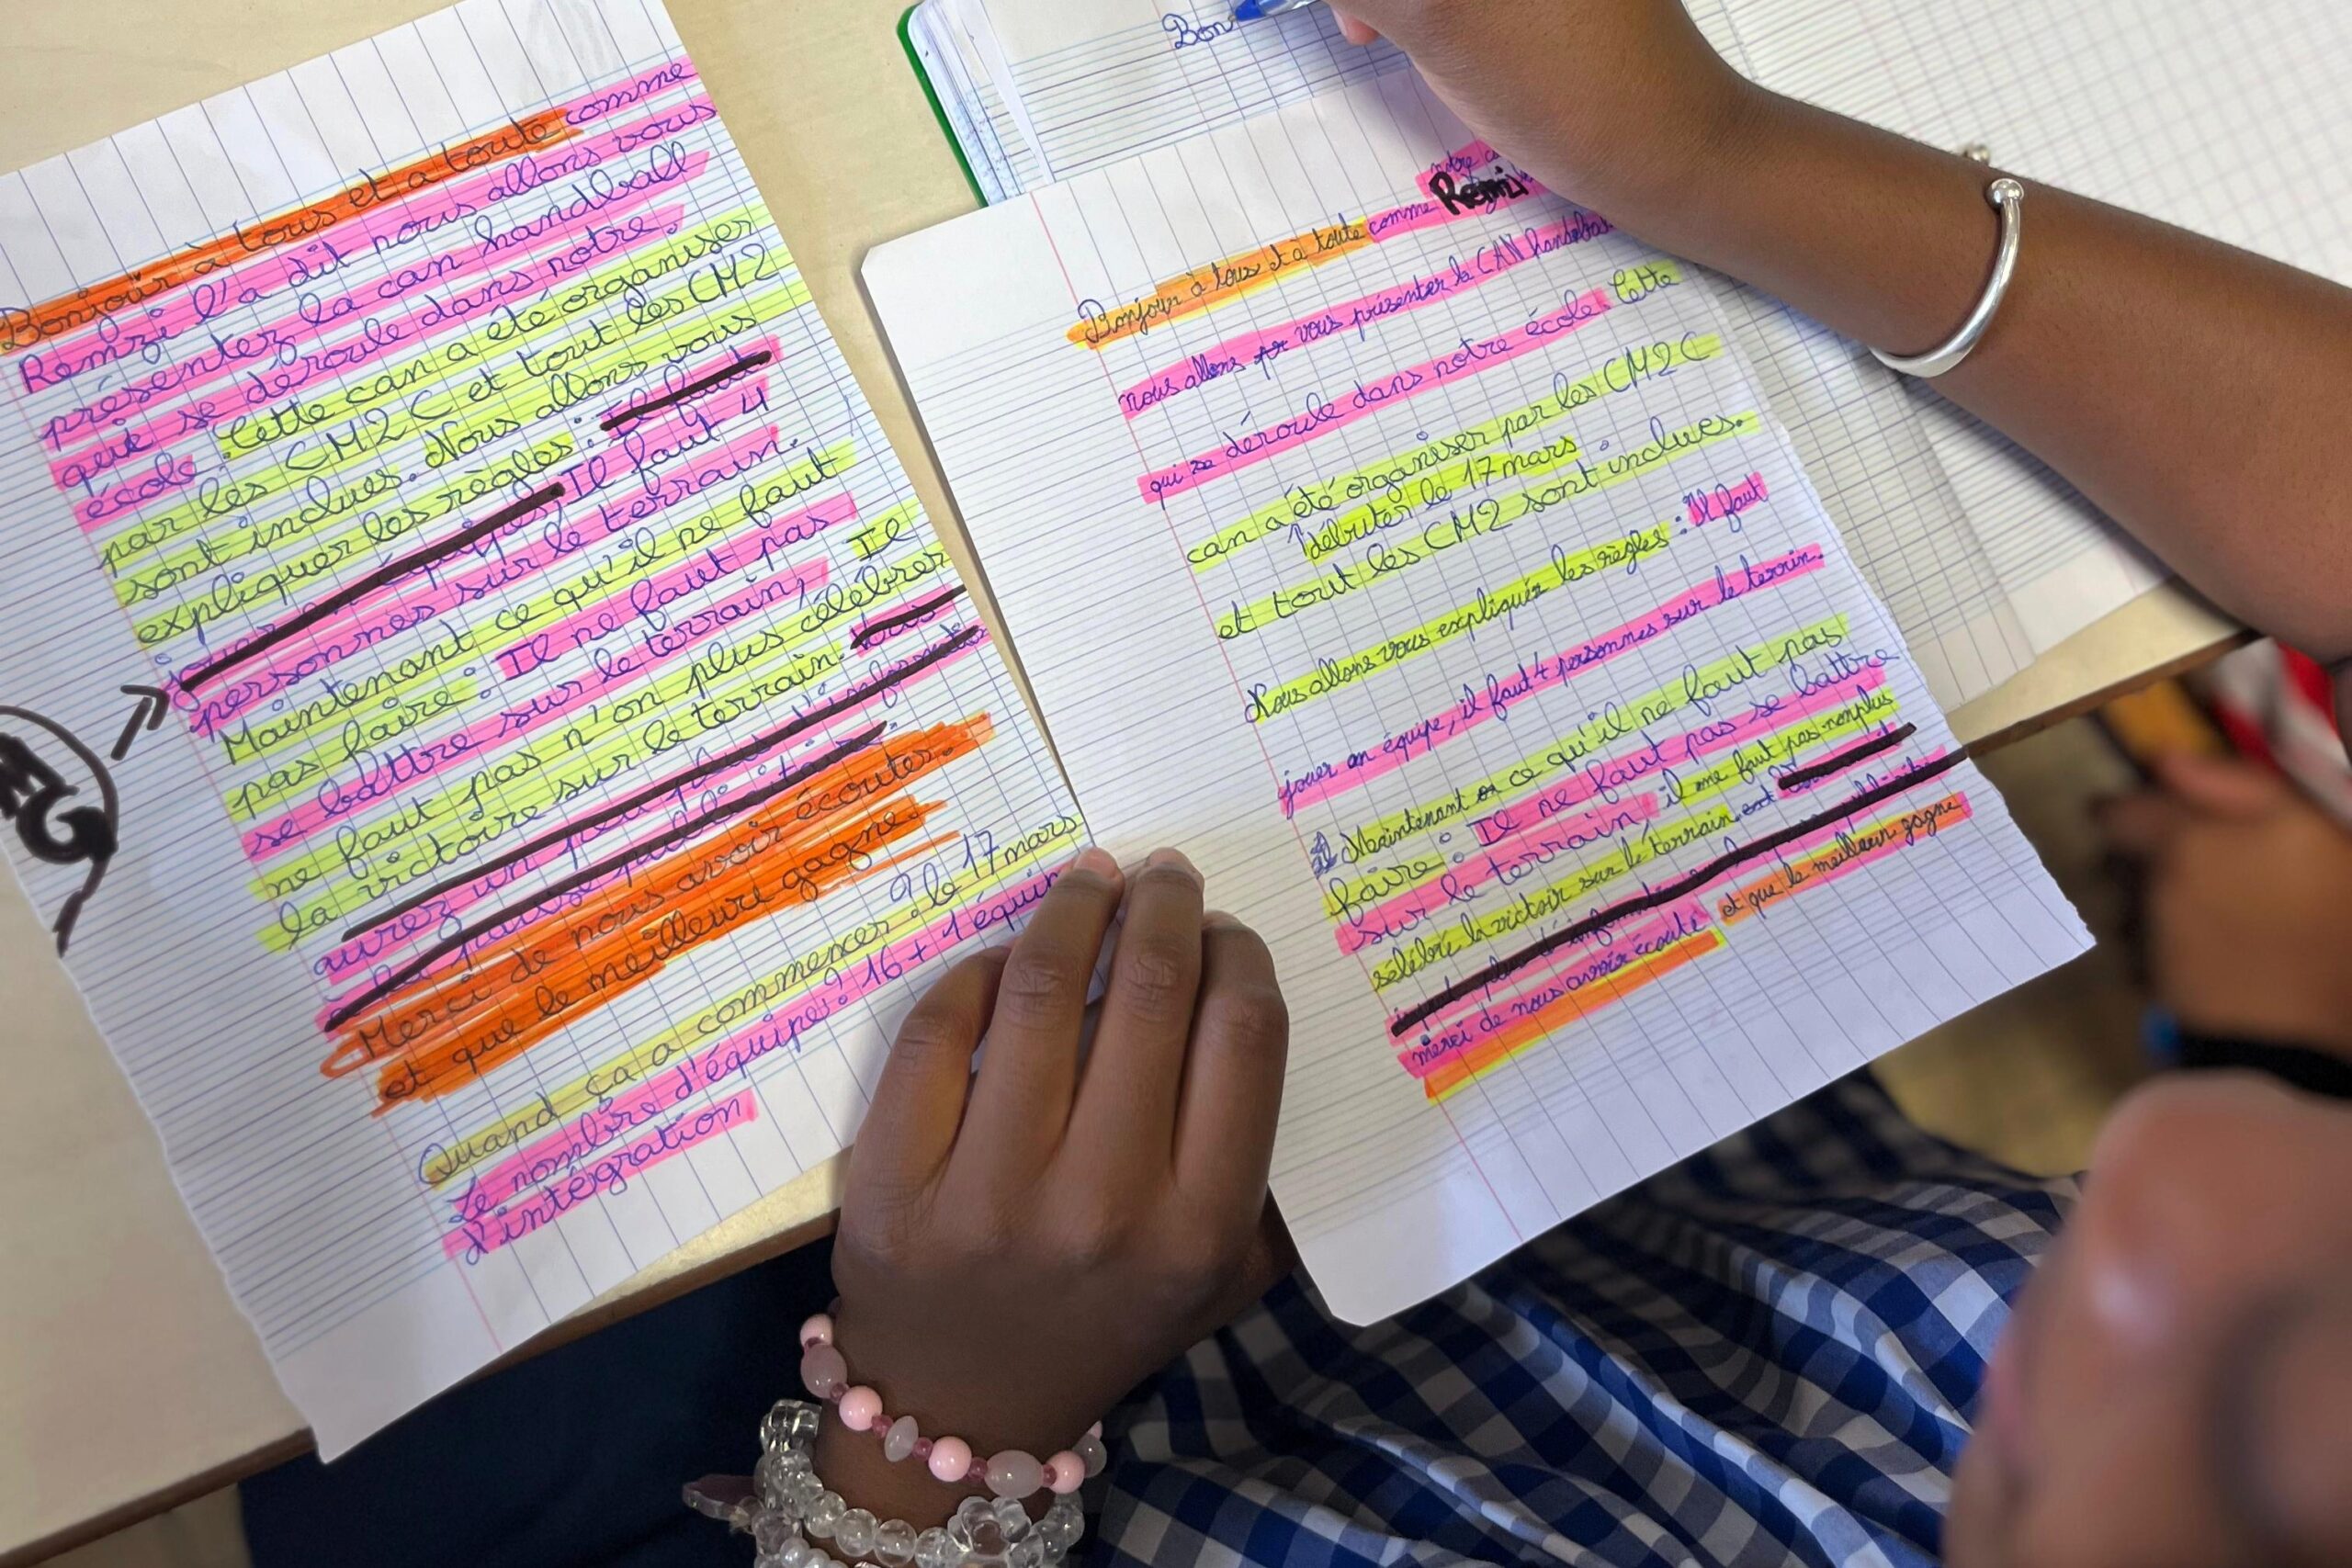 Bonjour à tous et a toute comme
Remzi l'a dit nous allons vous
présentez la can handball
qui se déroule dans notre
école. Cette can a été organiser
par les CM2 C et tout les CM2
sont inclues. Nous allons vous
expliquer les règles : Il faut
jouer en équipe, Il faut 4
personnes sur le terrain.
Maintenant ce qu'il ne faut
pas faire : Il ne faut pas
se battre sur le terrain, Il
ne faut pas n'on plus célébrer
la victoire sur le terrain. Vous
aurez un peu plus d'informatio
la pause publicitaire.
Merci de nous avoir écouter.
et que le meilleure gagne.
Quand ça a commencer ? le 17 mars
Le nombre d'équipe ? 16 + 1 équip
d'intégration
Bon
notre
Bonjour à tous et à toute comme Remzi
nous allons vous présenter la CAN handball
qui se déroule dans notre école. Cette
can a été organiser par les CM2 C
débuter le 17 mars
et tout les CM2 sont inclues.
Nous allons vous expliquer les règles : Il faut
jouer en équipe, il faut 4 personnes sur le terrain.
Maintenant ce qu'il ne faut pas
faire : Il ne faut pas se battre
sur le terrain, il ne faut pas non plus
sélébré la victoir sur le terrain.
merci de nous avoir écouté et que le meilleur gagne